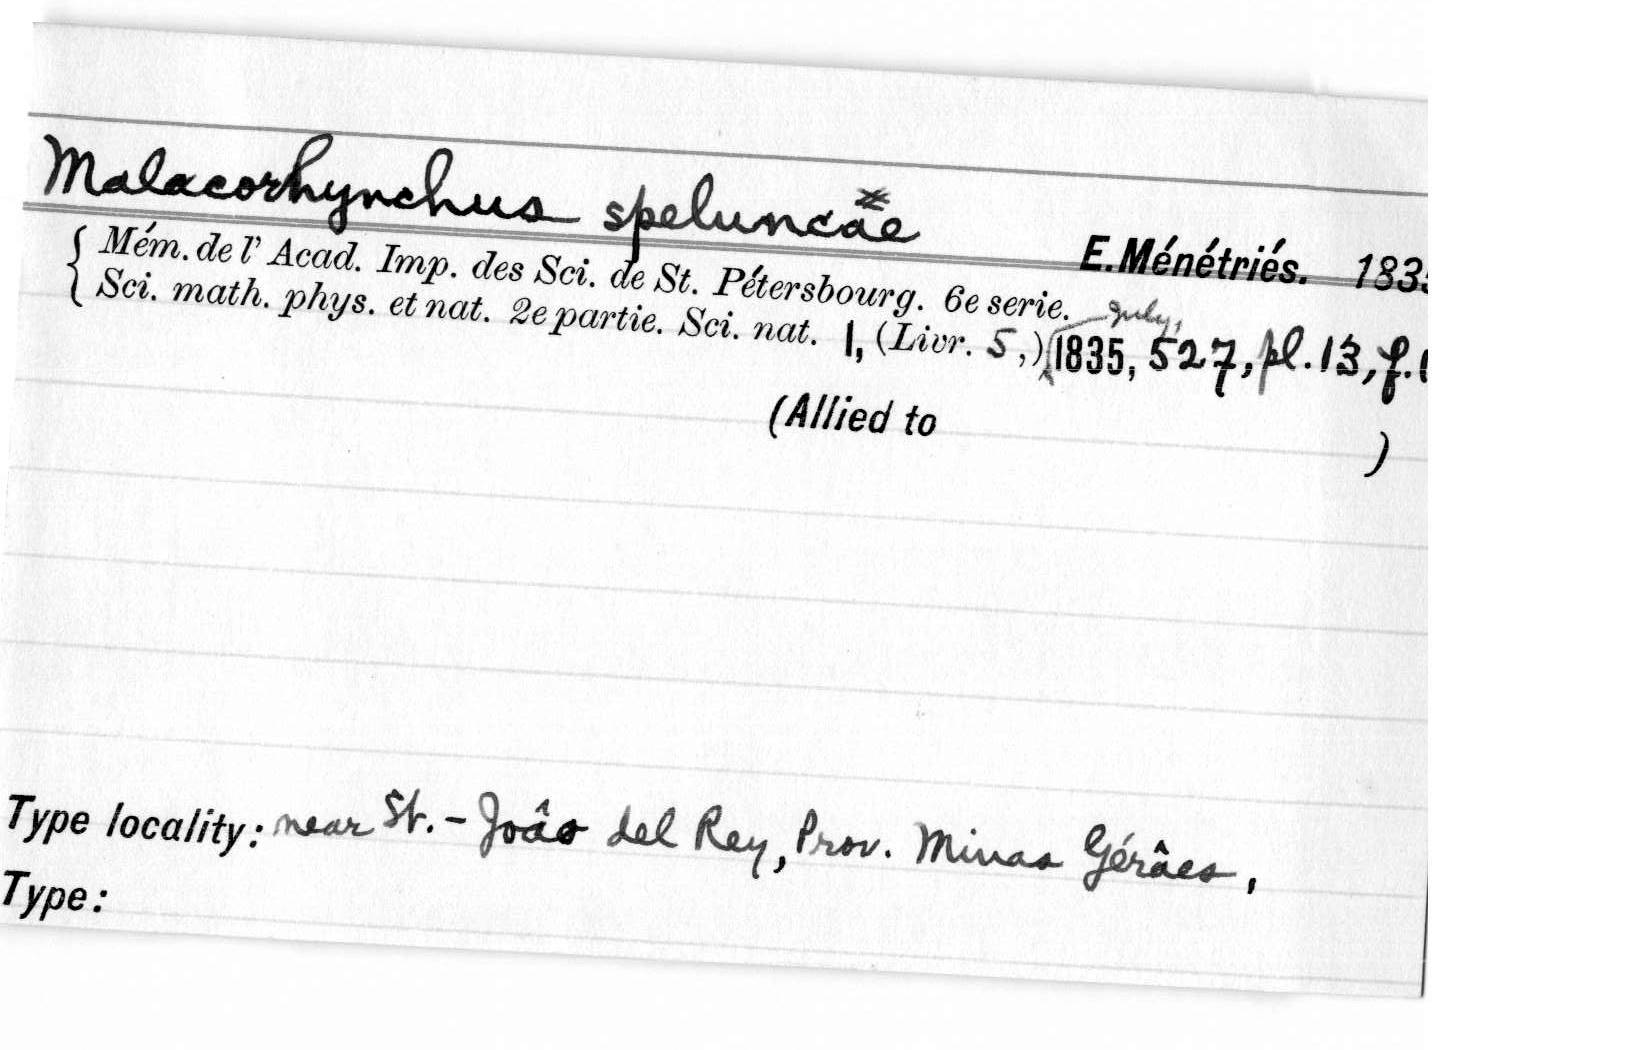 Malacorhynchus speluncae
E.Ménétriés. 1835
{ Mém. de l' Acad. Imp. des Sci. de St. Pétersbourg. 6e serie.
{ Sci. math. phys. et nat. 2e partie. Sci. nat. 1, (Livr. 5,) July, 1835, 527, pl. 13, f.
(Allied to )
Type locality: near St.-Joâo del Rey, Prov. Minas Gérâes,
Type: